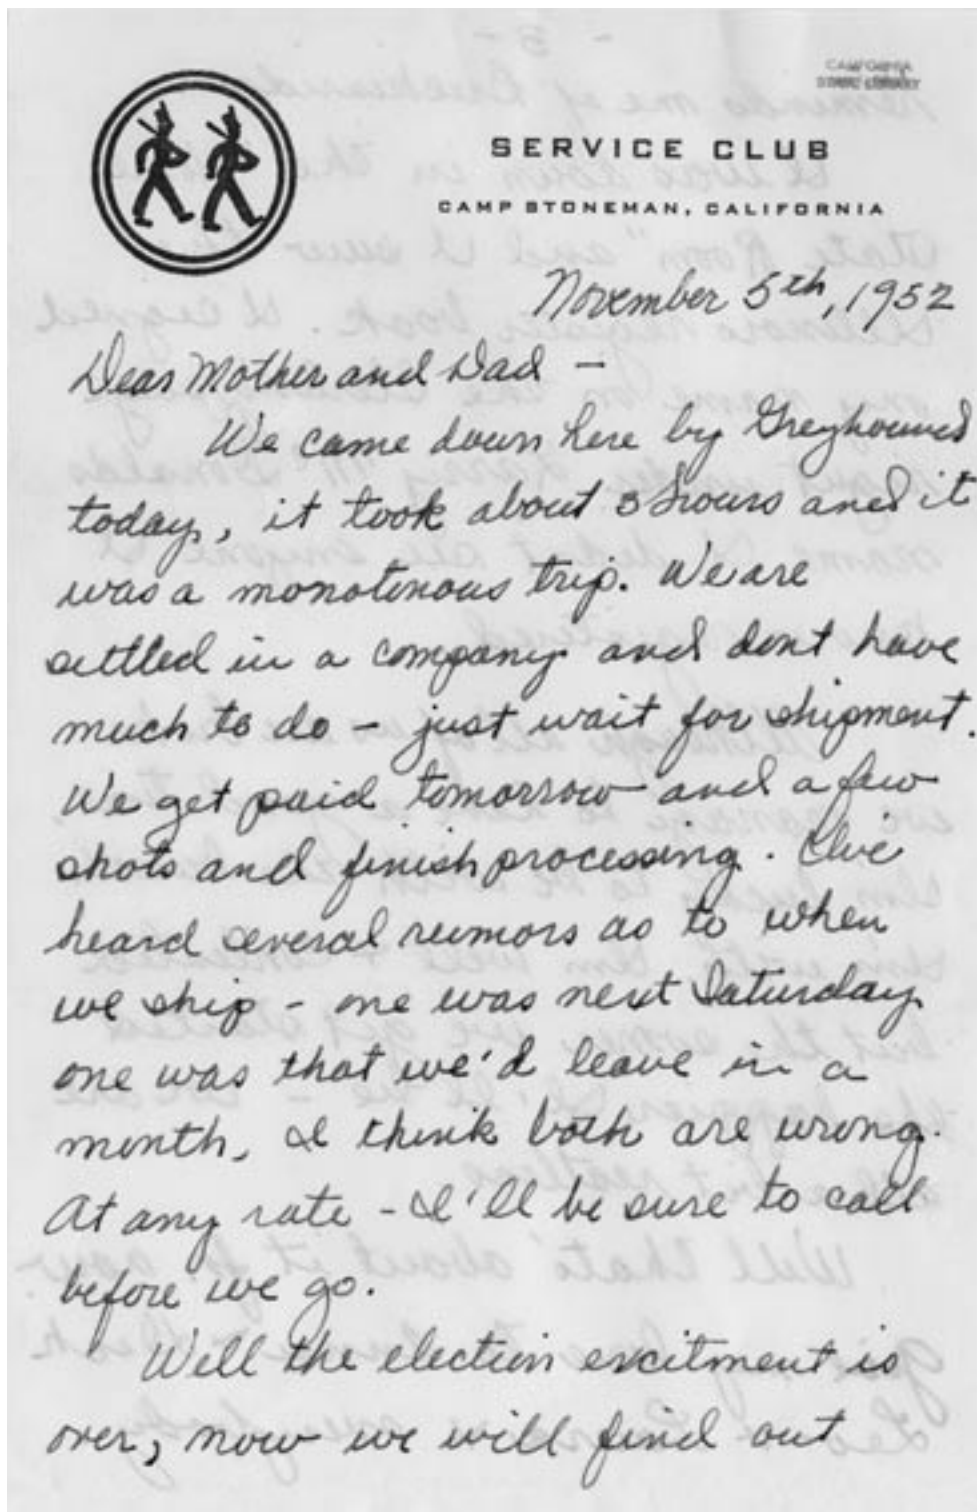 CALIFORNIA
STATE LIBRARY
SERVICE CLUB
CAMP STONEMAN, CALIFORNIA
November 5th, 1952
Dear Mother and Dad -
We came down here by Greyhound
today, it took about 3 hours and it
was a monotinous trip. We are
settled in a company and dont have
much to do - just wait for shipment.
We get paid tomorrow and a few
shots and finish processing. I've
heard several rumors as to when
we ship - one was next Saturday
one was that we'd leave in a
month, I think both are wrong.
At any rate - I'll be sure to call
before we go.
Well the election excitment is
over, now we will find out